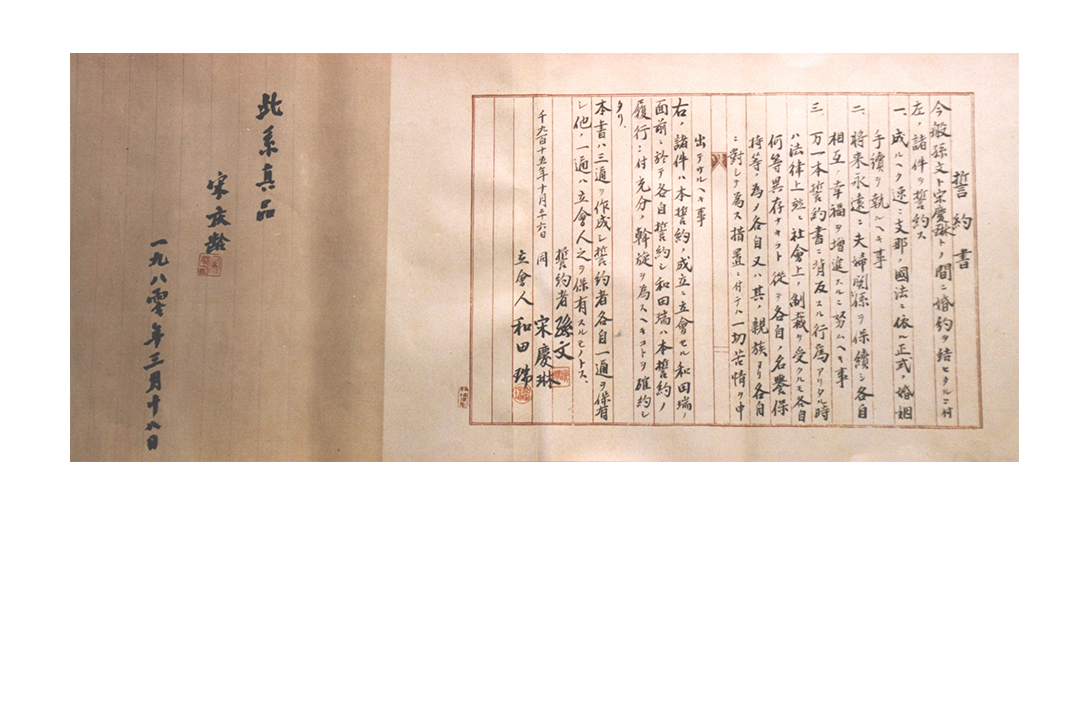 誓約書
今般孫文ト宋慶琳トノ間ニ婚約ヲ結ヒタルニ付
左ノ諸件ヲ誓約ス
一、成ルヘク速ニ支那ノ國法ニ依ル正式ノ婚姻
手續ヲ執ルヘキ事
二、將来永遠ニ夫婦関係ヲ保續シ各自
相互ノ幸福ヲ増進スルニ努ムヘキ事
三、万一本誓約書ニ背反スル行為アリタル時
ハ法律上竝ニ社會上ノ制裁ヲ受クルモ各自
何等異存ナキコト従テ各自ノ名譽保
持等ノ為メ各自又ハ其ノ親族ヨリ各自
ニ對シテ為ス措置ニ付テハ一切苦情ヲ申
出テサルヘキ事
右ノ諸件ハ本誓約ノ成立ニ立會セル和田瑞ノ
面前ニ於テ各自誓約シ和田瑞ハ本誓約ノ
履行ニ付充分ノ斡旋ヲ為スヘキコトヲ確約シ
タリ、
本書ハ三通ヲ作成シ誓約者各自一通ヲ保有
シ他ノ一通ハ立會人之ヲ保有スルモノトス、
千九百十五年十月二十六日
誓約者 孫文
同 宋慶琳
立會人 和田瑞
此系真品
宋庆龄
一九八零年三月十九日